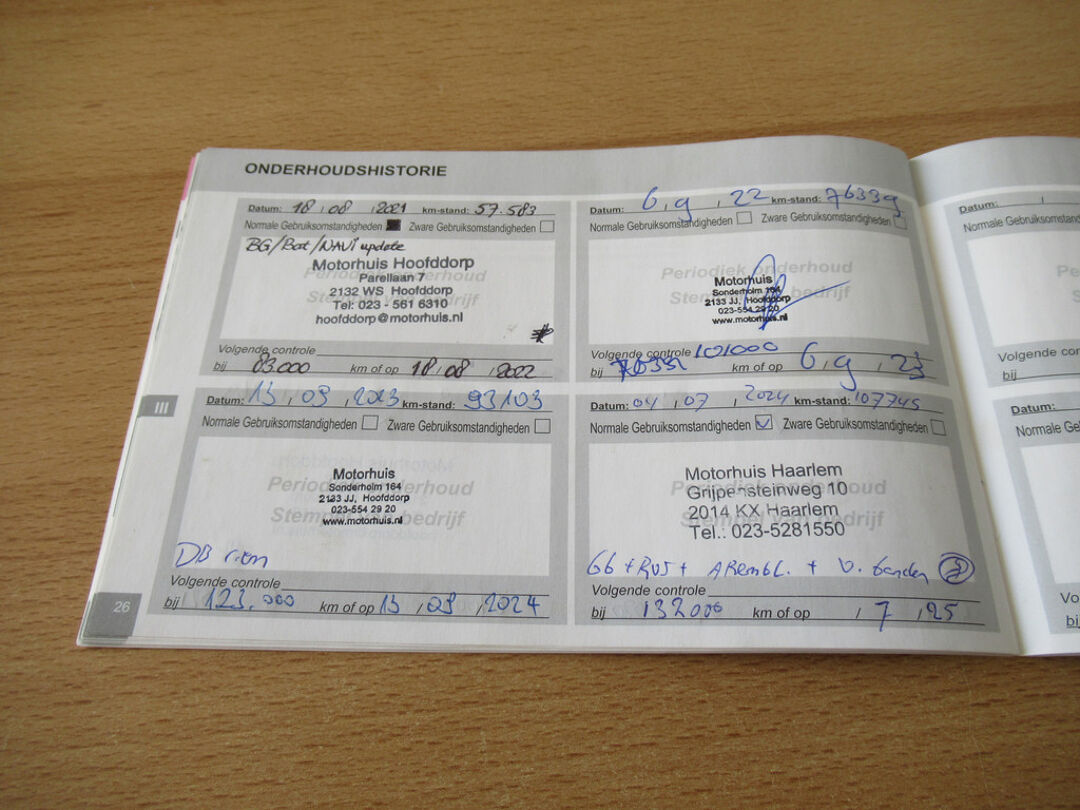 ONDERHOUDSHISTORIE
Datum: 18 / 08 / 2021 km-stand: 57.583
Normale Gebruiksomstandigheden Zware Gebruiksomstandigheden
BG/Bat/NAVI update
Periodiek onderhoud
Motorhuis Hoofddorp
Parellaan 7
2132 WS Hoofddorp
Tel: 023 - 561 6310
hoofddorp@motorhuis.nl
Volgende controle
bij 83.000 km of op 18 / 08 / 2022
Datum: 6 / 9 / 22 km-stand: 76339
Normale Gebruiksomstandigheden Zware Gebruiksomstandigheden
Periodiek onderhoud
Motorhuis
Sonderholm 164
2133 JJ, Hoofddorp
023-554 29 20
www.motorhuis.nl
Volgende controle 101000
bij km of op 6 / 9 / 23
III
Datum: 13 / 09 / 2023 km-stand: 93103
Normale Gebruiksomstandigheden Zware Gebruiksomstandigheden
Periodiek onderhoud
Stempel van bedrijf
Motorhuis
Sonderholm 164
2133 JJ, Hoofddorp
023-554 29 20
www.motorhuis.nl
DB riem
Volgende controle
bij 123.000 km of op 13 / 09 / 2024
Datum: 04 / 07 / 2024 km-stand: 107745
Normale Gebruiksomstandigheden Zware Gebruiksomstandigheden
Motorhuis Haarlem
Grijpensteinweg 10
2014 KX Haarlem
Tel.: 023-5281550
Volgende controle
bij 132000 km of op / 7 / 25
26
Datum: /
Normale Gebruiksomstand
Volgende con
bij
Datum:
Normale Ge
Vo
bij